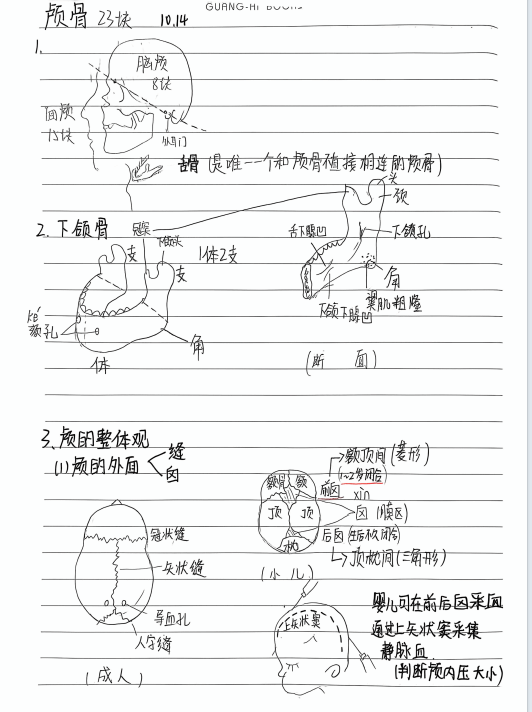 GUANG-HI BOOKS
颅骨 23块 10.14
1.
脑颅
8块
面颅
15块
舌骨 (是唯一一个和颅骨直接相连的颅骨)
头
颈
2. 下颌骨
冠突
下颌头
1体2支
支
支
舌下腺凹
下颌孔
角
翼肌粗隆
下颌下腺凹
kē
颏孔
角
体
(断面)
3、颅的整体观
(1) 颅的外面
缝
囟
额骨
额
顶
顶
枕
→额顶间 (菱形)
(1~2岁闭合)
前囟
xin
囟 (膜区)
后囟 (生后不久闭合)
→顶枕间 (三角形)
(小儿)
冠状缝
矢状缝
导血孔
人字缝
(成人)
上矢状窦
婴儿可在前后囟采血
通过上矢状窦采集
静脉血
(判断颅内压大小)